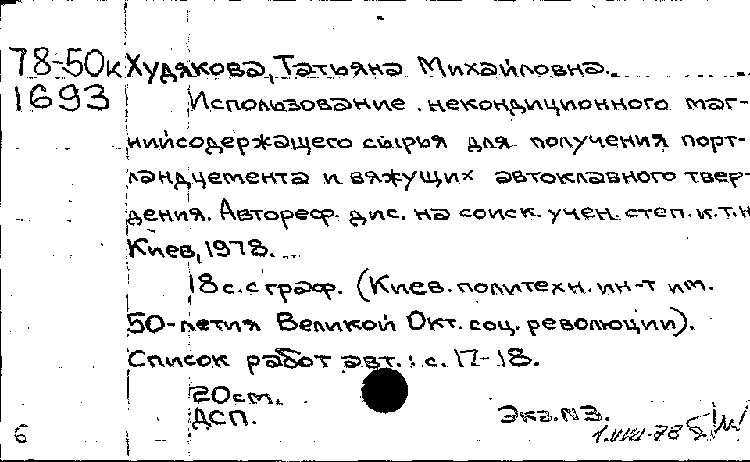 78-50к Худякова, Татьяна Михайловна.
1693 Использование некондиционного маг-
нийсодержащего сырья для получения порт-
ландцемента и вяжущих автоклавного твер-
дения. Автореф. дис. на соиск. учен. степ. к.т.н
Киев, 1978.
18 с. с граф. (Киев. политехн. ин-т им.
50-летия Великой Окт. соц. революции).
Список работ авт.: с. 17-18.
20 см.
ДСП. Экз. №3.
6